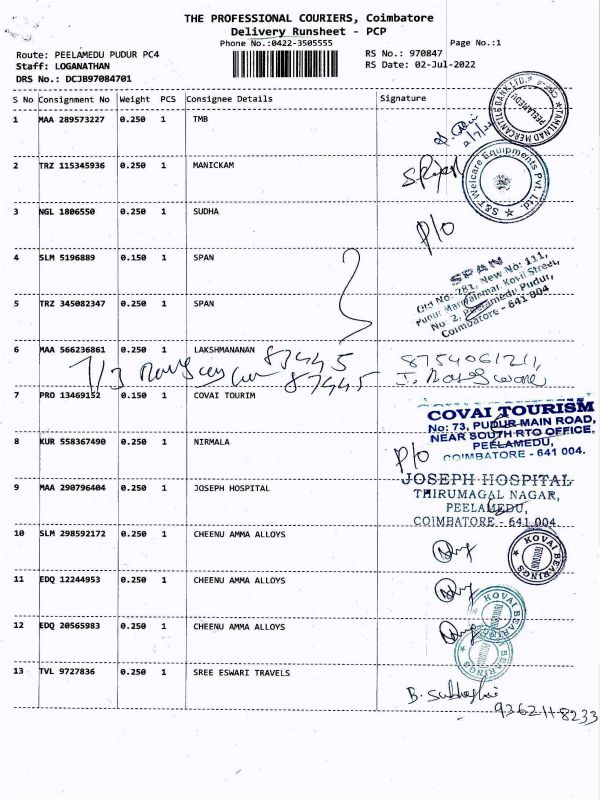 THE PROFESSIONAL COURIERS, Coimbatore
Delivery Runsheet - PCP
Phone No.:0422-3505555
Page No.:1
Route: PEELAMEDU PUDUR PC4
Staff: LOGANATHAN
DRS No.: DCJB97084701
RS No.: 970847
RS Date: 02-Jul-2022
S No Consignment No Weight PCS Consignee Details Signature
1 MAA 289573227 0.250 1 TMB
TAMILNAD MERCANTILE BANK LTD.
PEELAMEDU
2 TRZ 115345936 0.250 1 MANICKAM
S&T Welcare Equipments Pvt. Ltd.
3 NGL 1806550 0.250 1 SUDHA
P/o
4 SLM 5196889 0.150 1 SPAN
SPAN
Old No: 281, New No: 111,
Pudur Mariyamman Kovil Street,
No 2, Peelamedu Pudur,
Coimbatore - 641 004
5 TRZ 345082347 0.250 1 SPAN
6 MAA 566236861 0.250 1 LAKSHMANANAN
87445
87445
8754061211,
7 PRO 13469152 0.150 1 COVAI TOURIM
COVAI TOURISM
No: 73, PUDUR MAIN ROAD,
NEAR SOUTH RTO OFFICE,
PEELAMEDU,
COIMBATORE - 641 004.
8 KUR 558367490 0.250 1 NIRMALA
P/o
9 MAA 290796404 0.250 1 JOSEPH HOSPITAL
JOSEPH HOSPITAL
THIRUMAGAL NAGAR,
PEELAMEDU,
COIMBATORE - 641 004.
10 SLM 298592172 0.250 1 CHEENU AMMA ALLOYS
KOVAI BEARINGS
11 EDQ 12244953 0.250 1 CHEENU AMMA ALLOYS
KOVAI BEARINGS
12 EDQ 20565983 0.250 1 CHEENU AMMA ALLOYS
BEARINGS
13 TVL 9727836 0.250 1 SREE ESWARI TRAVELS